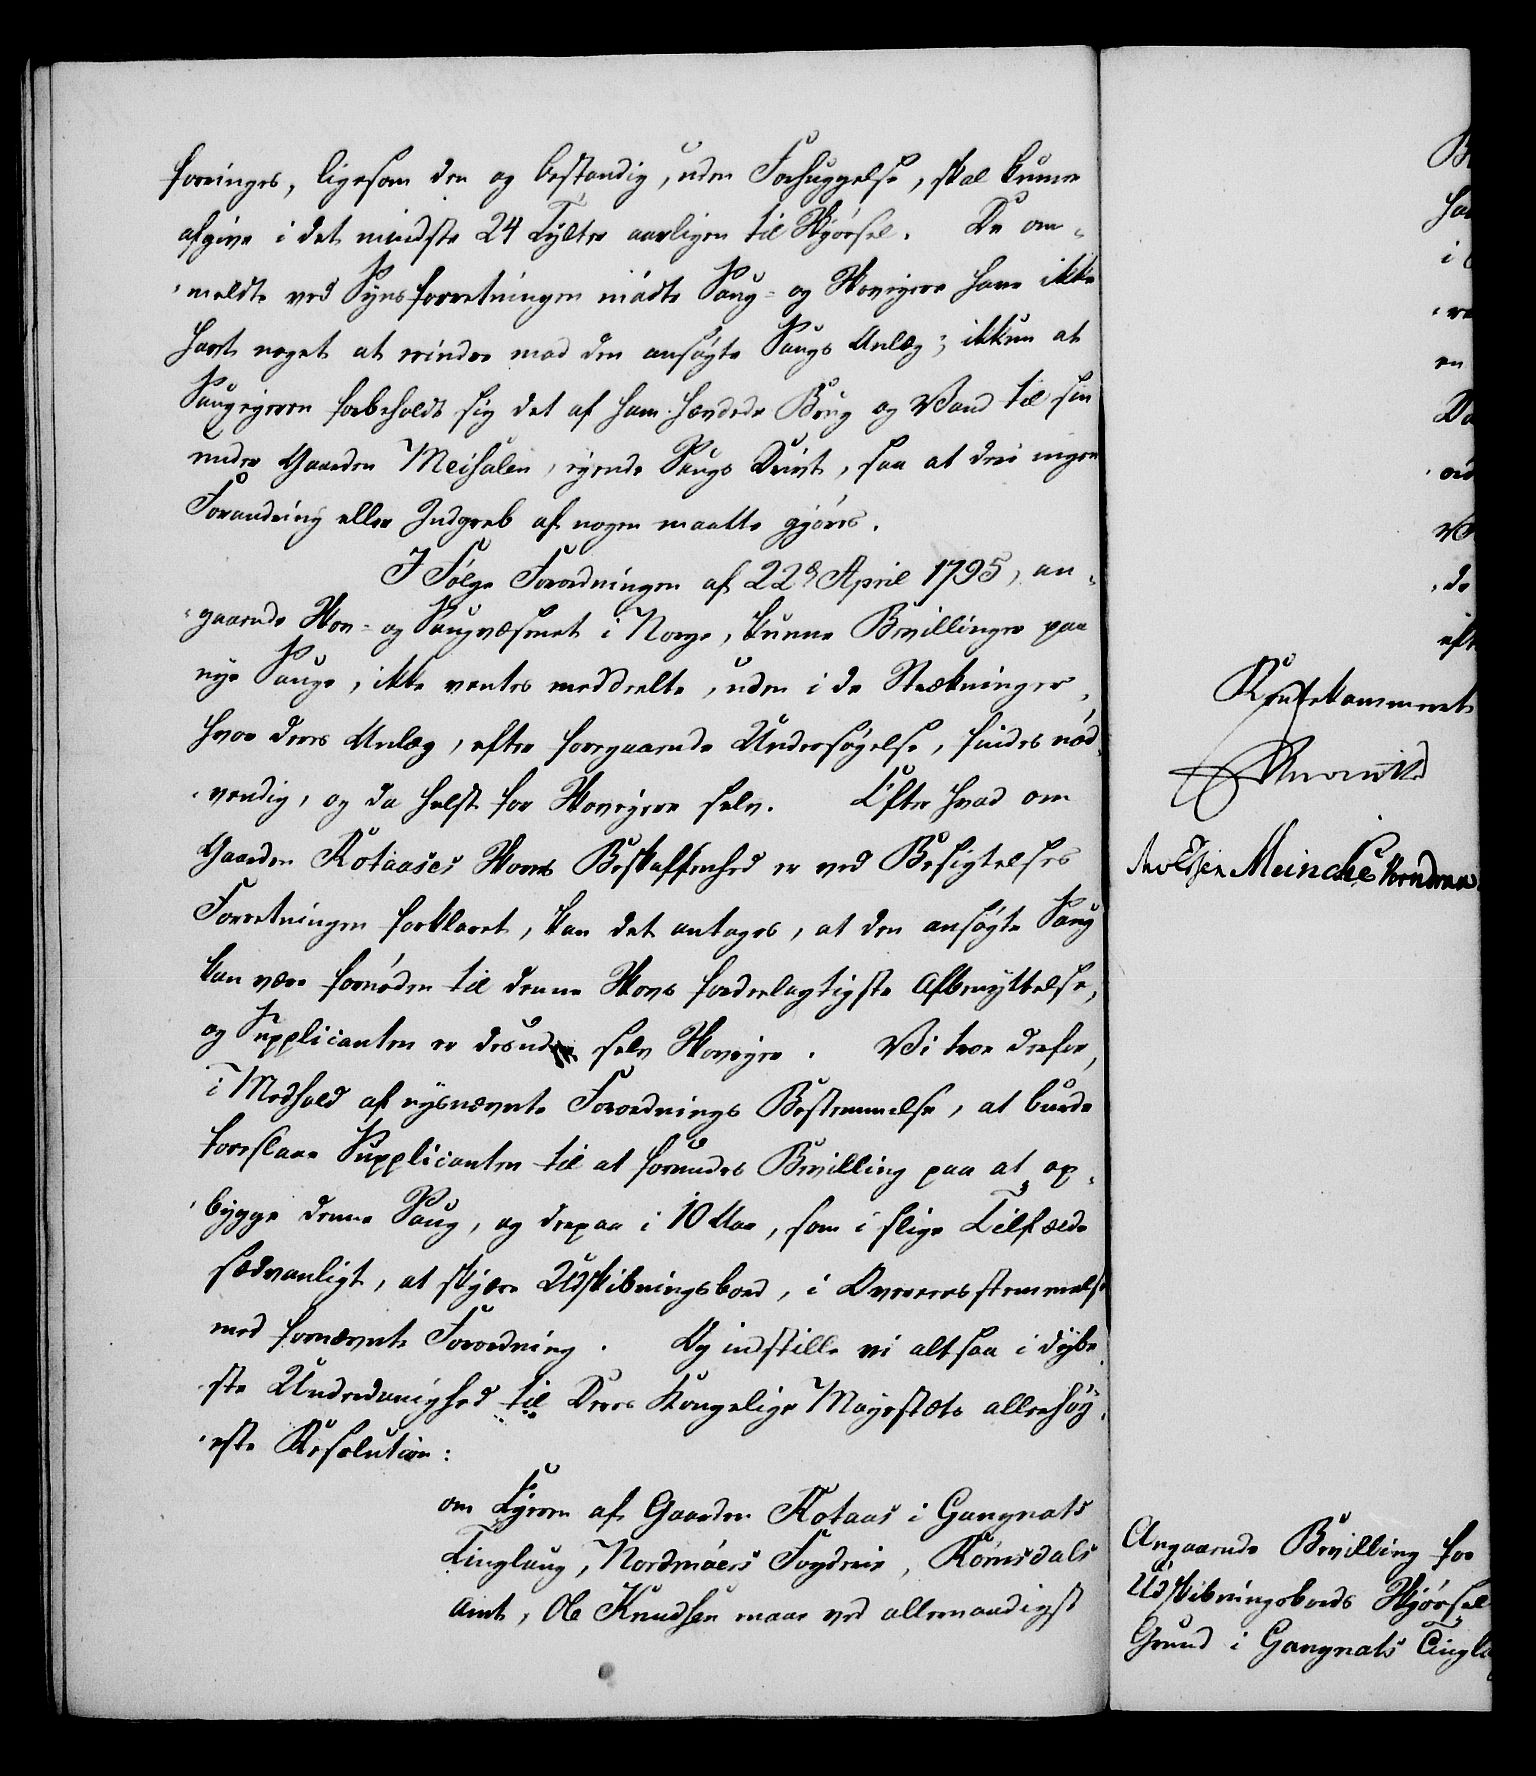 forringes, ligesom den og bestandig, uden Forhuggelse, skal kunne
afgive i det mindste 24 Tylter aarligen til Skjørsel. De om-
meldte ved Synsforretningen mødte Saug- og Skoveiere have ikke
havt noget at erindre mod den ansøgte Saugs Anlæg; ikkun at
Saugeieren forbeholdt sig det af ham hævdede Brug og Vand til sin
under Gaarden Meisalen, eiende Saugs Drivt, saa at deri ingen
Forandring eller Indgreb af nogen maatte gjøres.
I Følge Forordningen af 22d April 1795, an-
gaaende Skov- og Saugvæsenet i Norge, kunne Bevillinger paa
nye Sauge, ikke ventes meddeelte, uden i de Strækninger,
hvor deres Anlæg, efter foregaaende Undersøgelse, findes nød-
vendig, og da helst for Skoveiere selv. Efter hvad om
Gaarden Rotaases Skovs Beskaffenhed er ved Besigtelses
Forretningen forklaret, kan det antages, at den ansøgte Saug
kan være fornøden til denne Skovs fordeelagtigste Afbenyttelse,
og Supplicanten er desuden selv Skoveier. Vi troe derfor,
i Medhold af nysnævnte Forordnings Bestemmelse, at burde
foreslaae Supplicanten til at forundes Bevilling paa at op-
bygge denne Saug, og derpaa i 10 Aar, som i slige Tilfælde
sædvanligt, at skjære Udskibningsbord, i Overeensstemmelse
med fornævnte Forordning. Og indstille vi altsaa i dybe-
ste Underdanighed til Deres Kongelige Majestæts allerhøi-
este Resolution:
om Eieren af Gaarden Rotaas i Gangnats
Tinglaug, Nordmøers Fogderie, Romsdals
Amt, Ole Knudsen maae ved allernaadigst
Rentekammeret
Meinche
Angaaende Bevilling for
Udskibningsbords Skjørsel
Grund i Gangnats Tingla